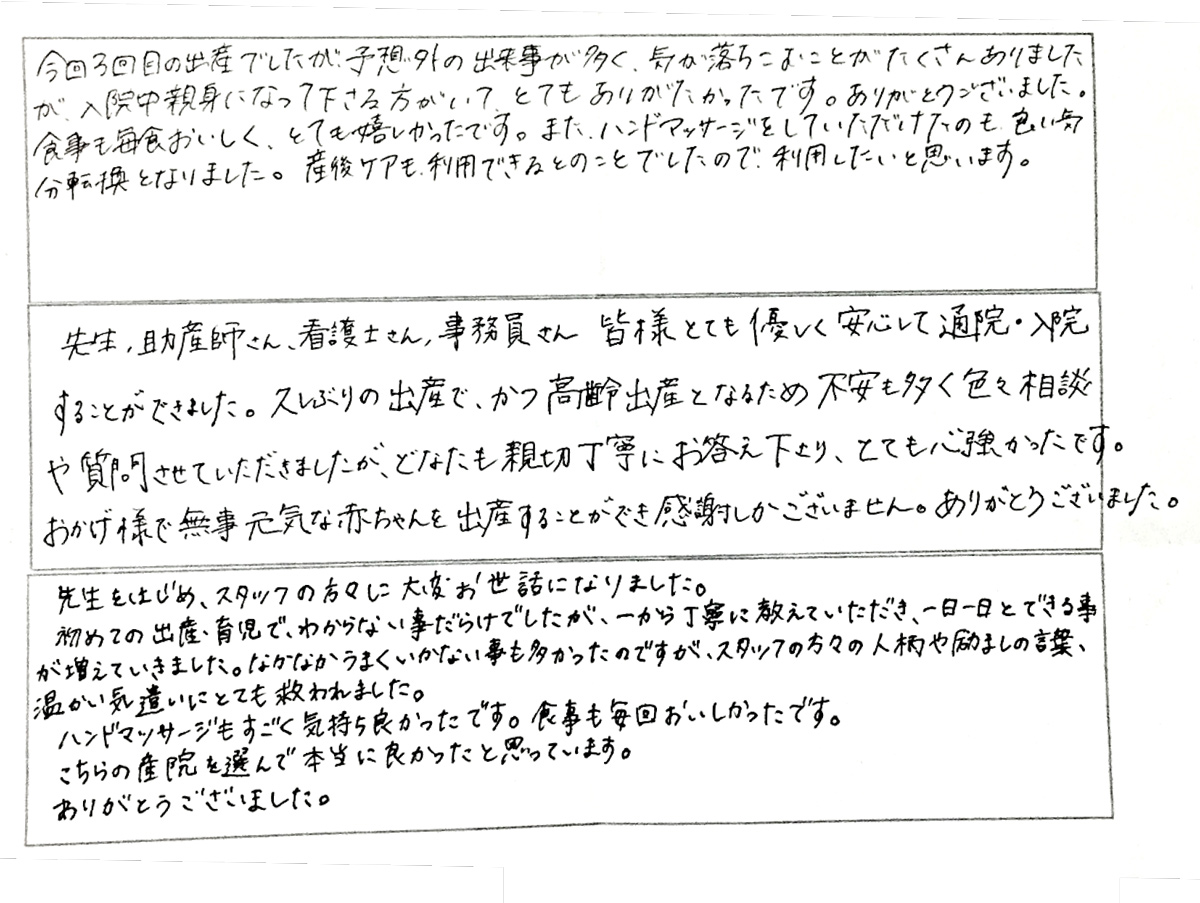 今回3回目の出産でしたが、予想外の出来事が多く、気が落ちこむことがたくさんありました
が、入院中親身になって下さる方がいて、とてもありがたかったです。ありがとうございました。
食事も毎食おいしく、とても嬉しかったです。また、ハンドマッサージをしていただけたのも、良い気
分転換となりました。産後ケアも、利用できるとのことでしたので、利用したいと思います。
先生、助産師さん、看護士さん、事務員さん 皆様とても優しく安心して通院・入院
することができました。久しぶりの出産で、かつ高齢出産となるため不安も多く色々相談
や質問させていただきましたが、どなたも親切丁寧にお答え下さり、とても心強かったです。
おかげ様で無事元気な赤ちゃんを出産することができ感謝しかございません。ありがとうございました。
先生をはじめ、スタッフの方々に大変お世話になりました。
初めての出産・育児で、わからない事だらけでしたが、一から丁寧に教えていただき、一日一日とできる事
が増えていきました。なかなかうまくいかない事も多かったのですが、スタッフの方々の人柄や励ましの言葉、
温かい気遣いにとても救われました。
ハンドマッサージもすごく気持ち良かったです。食事も毎回おいしかったです。
こちらの産院を選んで本当に良かったと思っています。
ありがとうございました。